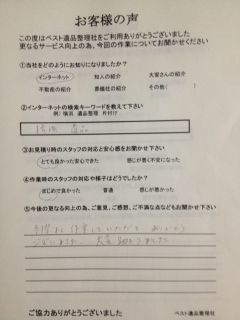 お客様の声
この度はベスト遺品整理社をご利用ありがとうございました
更なるサービス向上の為、今回の作業についてお聞かせください
①当社をどのようにお知りになりましたか?
インターネット 知人の紹介 大家さんの紹介
不動産の紹介 葬儀社の紹介 その他(
②インターネットの検索キーワードを教えて下さい
例)横浜 遺品整理 片付け
横浜 遺品
③お見積り時のスタッフの対応と安心感をお聞かせ下さい
とても良かった安心できた 感じが悪く不安になった
④作業時のスタッフの対応や様子はどうでしたか?
まじめで良かった 普通 感じが悪かった
⑤今後の更なる向上の為、ご意見、ご感想、ご不満な点などもお聞かせ下さい
作業していただき ありがとう
ございました。 大変助かりました
ご協力ありがとうございました
ベスト遺品整理社